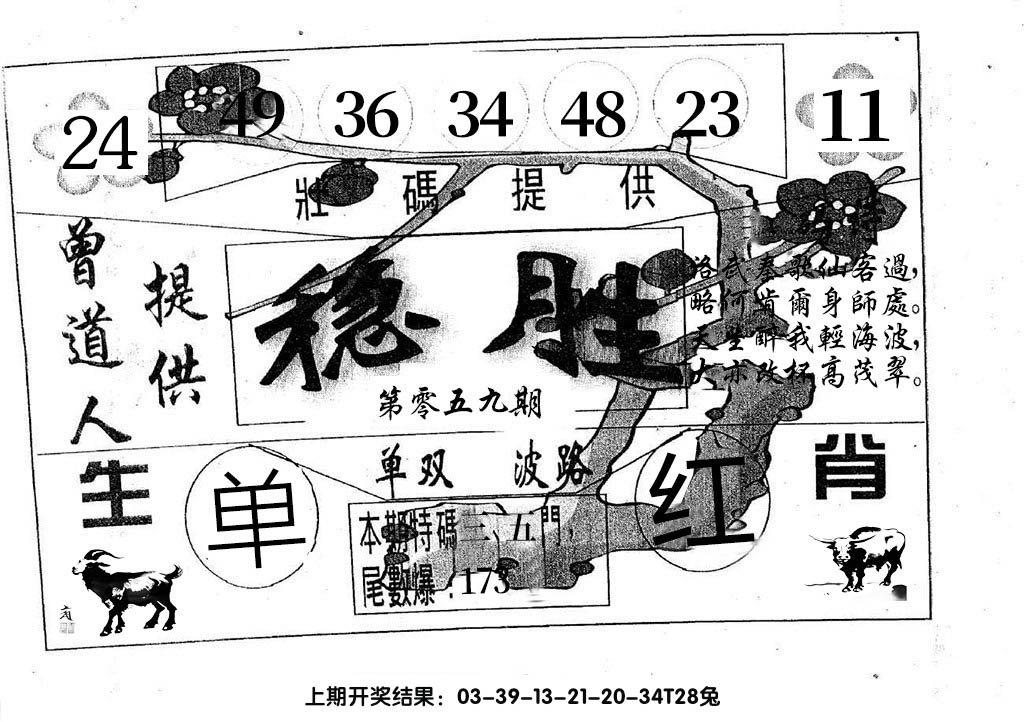 24 49 36 34 48 23 11
壯碼提供
曾道人
提供
稳胜
第零五九期
洛武奏歌仙客過，
略何肯爾身師處。
天坐醉我輕海波，
大亦改杯高茂翠。
单双 波路
生肖
单
红
本期特碼三、五門，
尾數爆：173
上期开奖结果：03-39-13-21-20-34T28兔